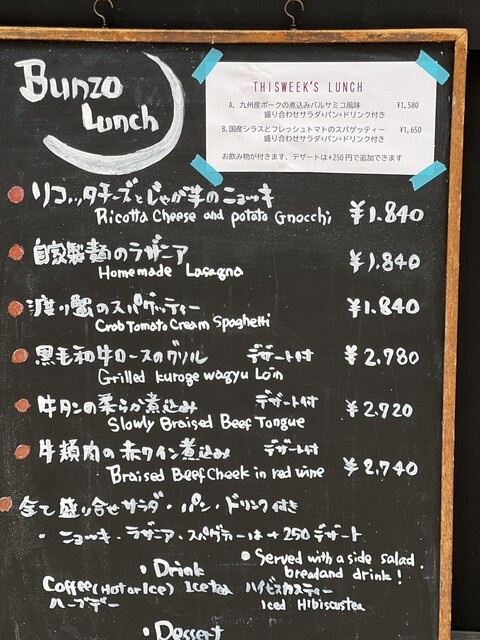 Bunzo
Lunch
THISWEEK'S LUNCH
A. 九州産ポークの煮込みバルサミコ風味 ¥1,580
盛り合わせサラダ+パン+ドリンク付き
B. 国産シラスとフレッシュトマトのスパゲッティー ¥1,650
盛り合わせサラダ+パン+ドリンク付き
お飲み物が付きます、デザートは+250円で追加できます
リコッタチーズとじゃが芋のニョッキ
Ricotta Cheese and potato Gnocchi ¥1.840
自家製麺のラザニア ¥1.840
Homemade Lasagna
渡り蟹のスパゲッティー ¥1.840
Crab Tomato Cream Spaghetti
黒毛和牛ロースのグリル デザート付 ¥2.780
Grilled kuroge wagyu Loin
牛タンの柔らか煮込み デザート付 ¥2.720
Slowly Braised Beef Tongue
牛頬肉の赤ワイン煮込み デザート付 ¥2.740
Braised Beef Cheek in red wine
全て盛り合せサラダ・パン・ドリンク付き
・ニョッキ・ラザニア・スパゲティーは+250デザート
• Served with a side salad.
bread and drink!
・Drink
Coffee (Hot or Ice) Ice tea ハイビスカスティー
ハーブティー Iced Hibiscus tea
・Dessert